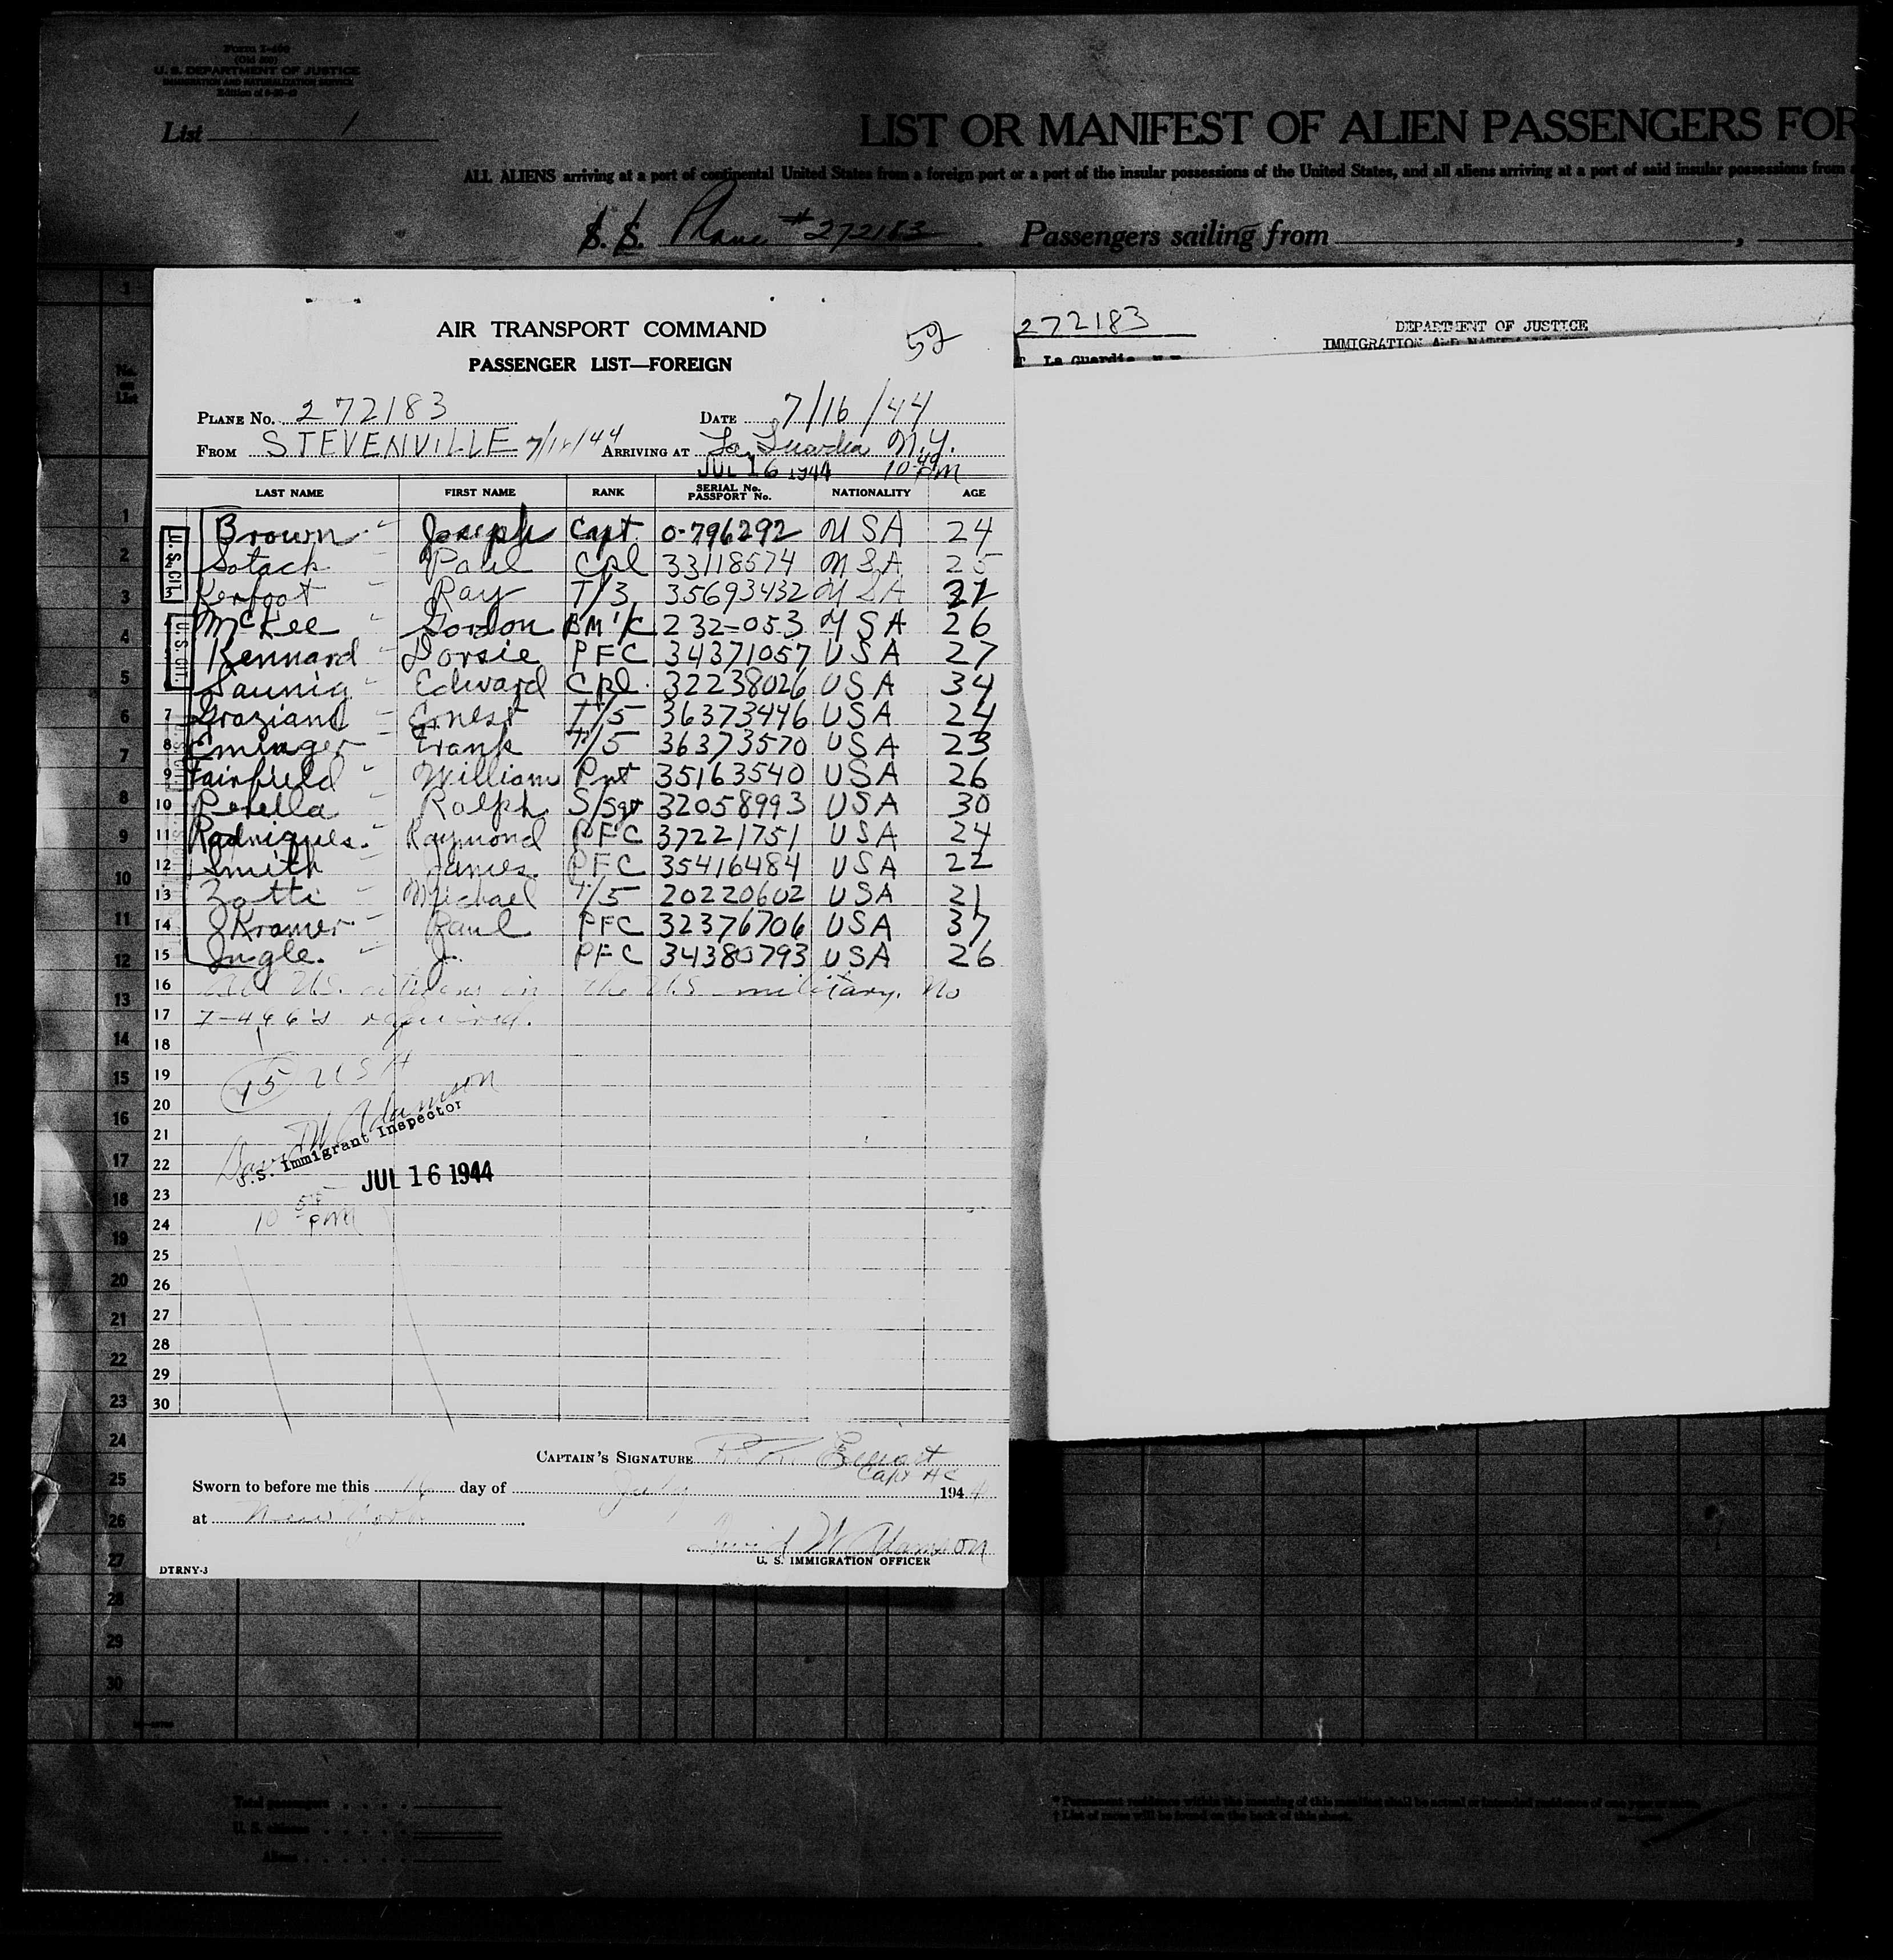 Form I-466
(Old 500)
U. S. DEPARTMENT OF JUSTICE
IMMIGRATION AND NATURALIZATION SERVICE
List 1
LIST OR MANIFEST OF ALIEN PASSENGERS FOR
ALL ALIENS arriving at a port of continental United States from a foreign port or a port of the insular possessions of the United States, and all aliens arriving at a port of said insular possessions from a
S. S. Plane #272183 . Passengers sailing from ,
272183
DEPARTMENT OF JUSTICE
IMMIGRATION AND
La Guardia
No. on List
AIR TRANSPORT COMMAND
52
PASSENGER LIST—FOREIGN
PLANE No. 272183 DATE 7/16/44
FROM STEVENVILLE 7/16/44 ARRIVING AT La Guardia N.Y.
JUL 16 1944 10 40 PM
LAST NAME FIRST NAME RANK SERIAL No. PASSPORT No. NATIONALITY AGE
U. S. CIT.
U. S. CIT.
1 Brown Joseph Capt. 0-796292 USA 24
2 Sotack Paul Cpl 33118574 USA 25
3 Kerfoot Ray T/3 35693432 USA
4 McKee Gordon BM 1/C 232-053 USA 26
5 Kennard Dorsie PFC 34371057 USA 27
6 Saunig Edward Cpl. 32238026 USA 34
7 Graziano Ernest T/5 36373446 USA 24
8 Eminger Frank T/5 36373570 USA 23
9 Fairfield William Pvt 35163540 USA 26
10 Perella Ralph S/Sgt 32058993 USA 30
11 Rodriques. Raymond PFC 37221751 USA 24
12 Smith James. PFC 35416484 USA 22
13 Zotti Michael T/5 20220602 USA 21
14 Kramer Paul PFC 32376706 USA 37
15 Ingle. J. PFC 34380793 USA 26
16 All U.S. citizens in the U.S. military. No
17 I-466's required.
18
19 15 USA
20
21 David W Adamson
22 U.S. Immigrant Inspector
JUL 16 1944
23
24 10 55 PM
25
26
27
28
29
30
CAPTAIN'S SIGNATURE R. K.
Capt AC
Sworn to before me this 16 day of July 1944
at New York
David W Adamson
U. S. IMMIGRATION OFFICER
DTRNY-3
Total passengers
U. S. citizens
Aliens
* Permanent residence within the meaning of this manifest shall be actual or intended residence of one year or more.
† List of races will be found on the back of this sheet.